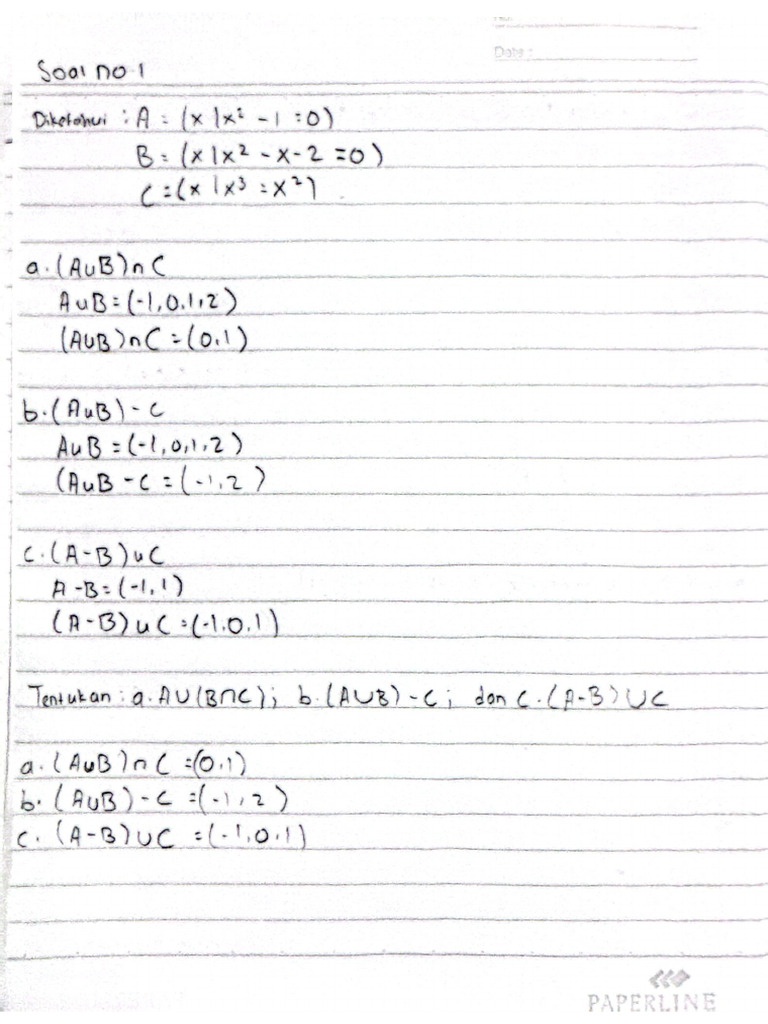 No:
Date :
Soal no 1
Diketahui : A = (x | x² - 1 = 0)
B = (x | x² - x - 2 = 0)
C = (x | x³ = x²)
a. (A∪B)∩C
A∪B = (-1, 0, 1, 2)
(A∪B)∩C = (0,1)
b. (A∪B) - C
A∪B = (-1, 0, 1, 2)
(A∪B - C = (-1, 2)
c. (A-B)∪C
A-B = (-1, 1)
(A-B)∪C = (-1, 0, 1)
Tentukan : a. A∪(B∩C) ; b. (A∪B) - C ; dan c. (A-B)∪C
a. (A∪B)∩C = (0,1)
b. (A∪B) - C = (-1, 2)
c. (A-B)∪C = (-1, 0, 1)
PAPERLINE